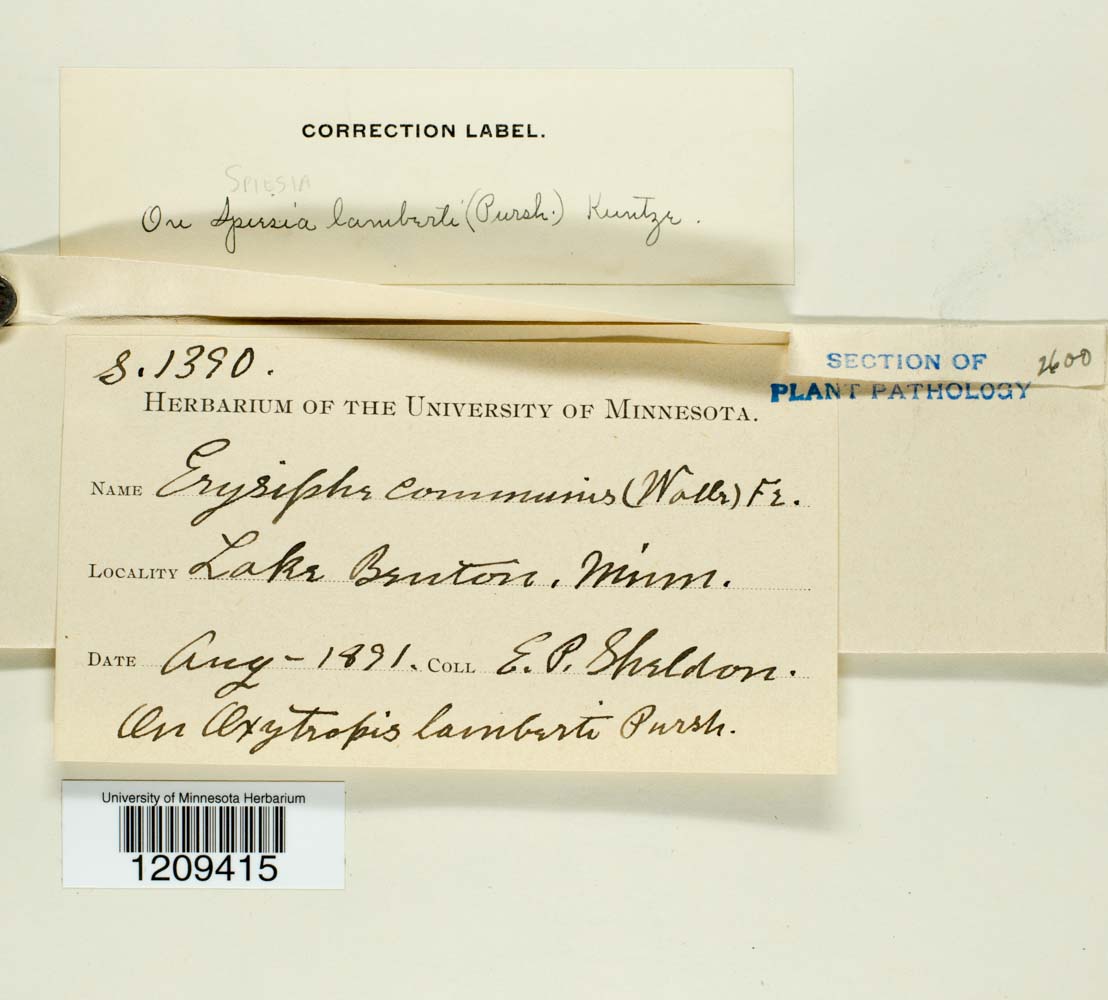 CORRECTION LABEL.
SPIESIA
On Spiesia lamberti (Pursh.) Kuntze.
S.1390.
HERBARIUM OF THE UNIVERSITY OF MINNESOTA.
SECTION OF
PLANT PATHOLOGY
2600
NAME Erysiphe communis (Wallr) Fr.
LOCALITY Lake Benton, Minn.
DATE Aug - 1891. COLL E. P. Sheldon.
On Oxytropis lamberti Pursh.
University of Minnesota Herbarium
1209415